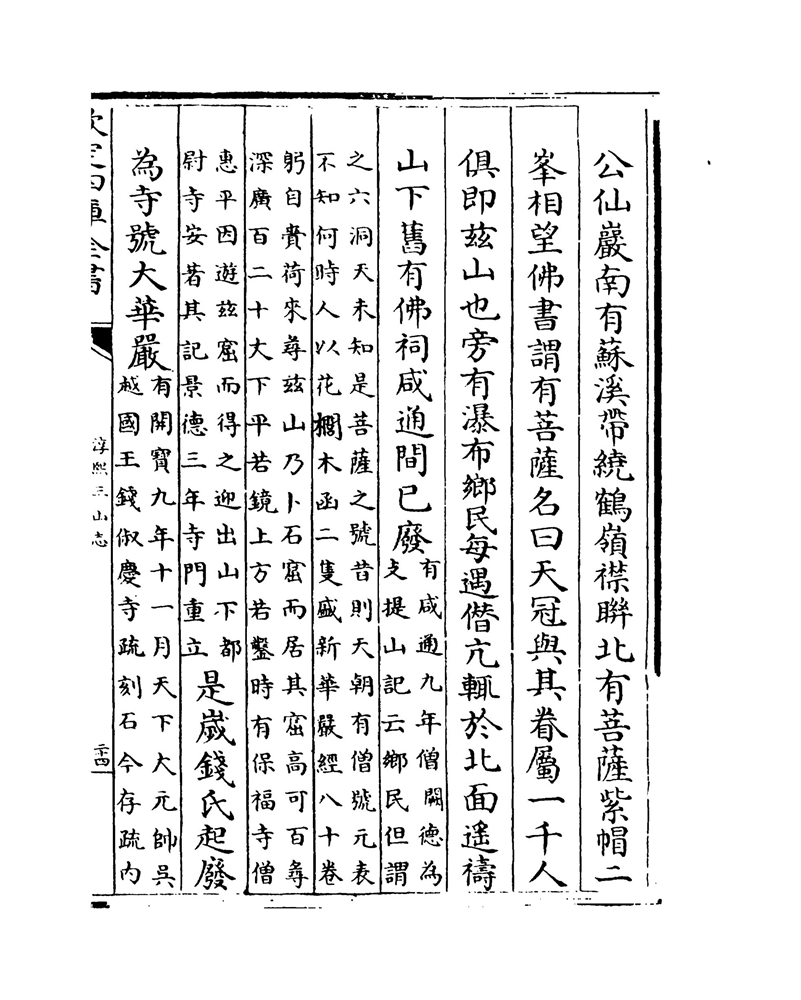 公仙巖南有蘇溪帶繞鶴嶺襟聨北有菩薩紫帽二
峯相望佛書謂有菩薩名曰天冠與其眷屬一千人
俱即兹山也旁有瀑布鄉民每遇僭亢輒於北面遥禱
山下舊有佛祠咸通間已廢
有咸通九年僧闕德為
支提山記云鄉民但謂
之六洞天未知是菩薩之號昔則天朝有僧號元表
不知何時人以花櫚木函二隻盛新華嚴經八十卷
躬自賫荷來尋兹山乃卜石窟而居其窟高可百尋
深廣百二十大下平若鏡上方若鑿時有保福寺僧
惠平因遊兹窟而得之迎出山下都
尉寺安着其記景德三年寺門重立
是嵗錢氏起廢
為寺號大華嚴
有開寶九年十一月天下大元帥吳
越國王錢俶慶寺疏刻石今存疏内
欽定四庫全書
淳熙三山志
二十四